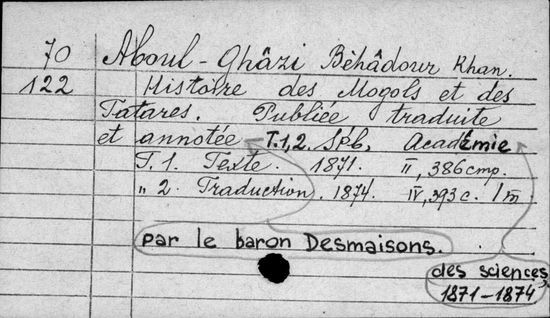 70 Aboul-Ghâzi Bèhâdour Khan.
122 Histoire des Mogols et des
Tatares. Publiée traduite
et annotée T.1,2. Spb, Académie
T. 1. Texte. 1871. II, 386 cmp.
„ 2. Traduction. 1874. IV, 393 c.
par le baron Desmaisons.
des sciences,
1871-1874